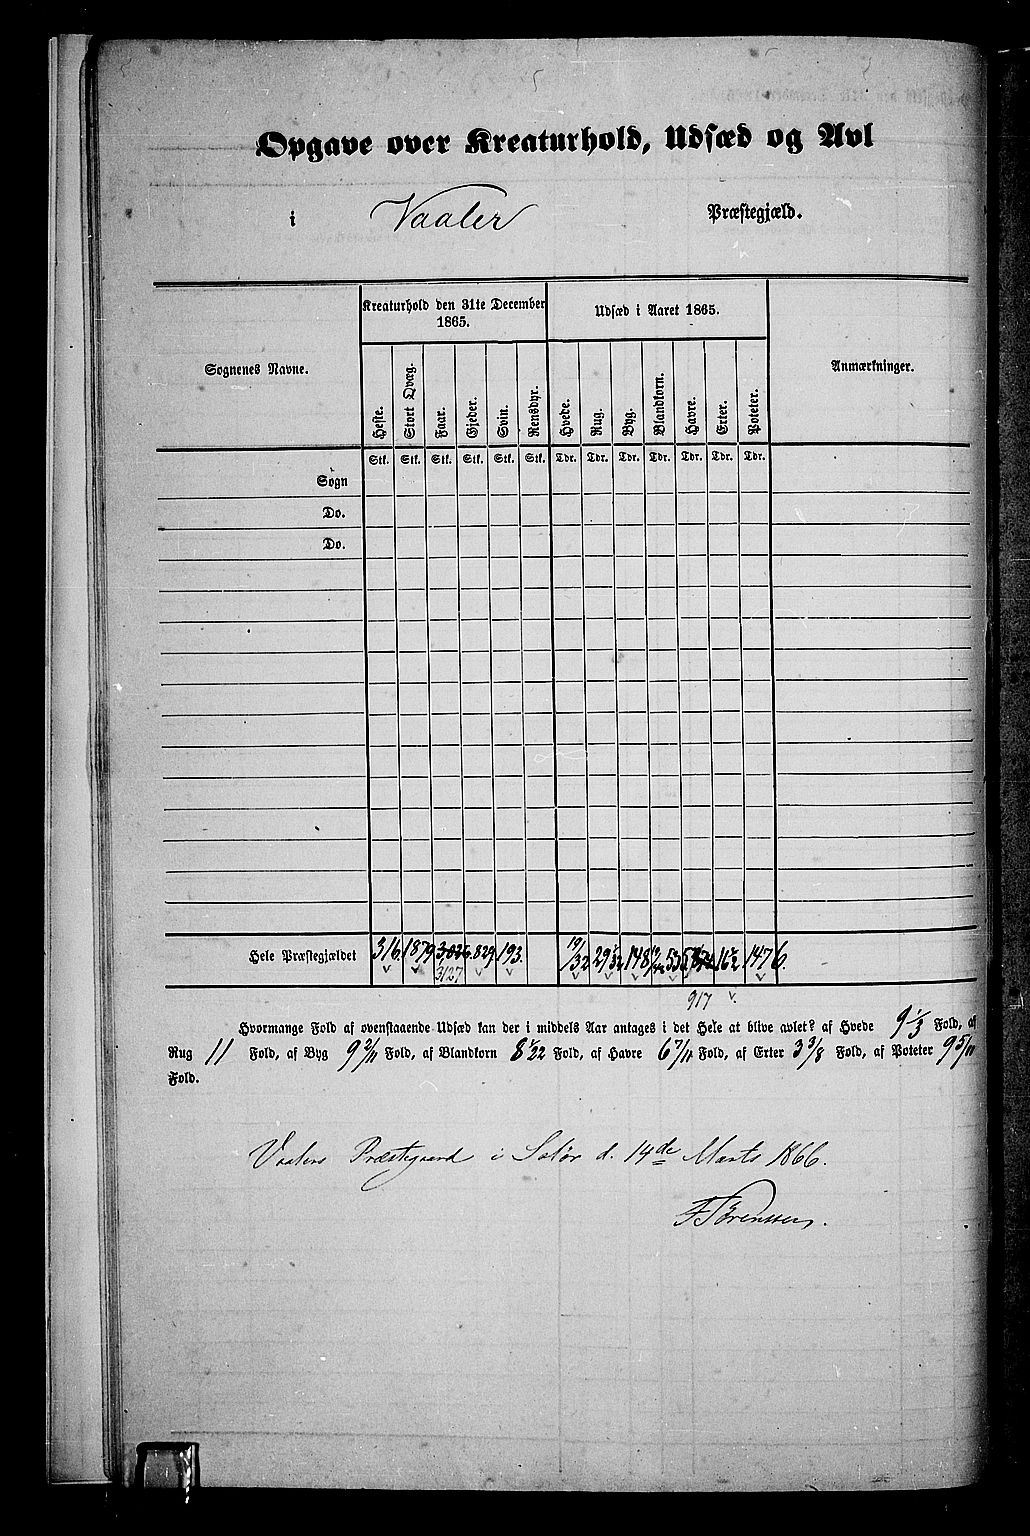 Opgave over Kreaturhold, Udsæd og Avl
i Vaaler Præstegjæld.
Sognenes Navne.
Kreaturhold den 31te December 1865.
Udsæd i Aaret 1865.
Anmærkninger.
Heste. Stort Qvæg. Faar. Gjeder. Svin. Rensdyr. Hvede. Rug. Byg. Blandkorn. Havre. Erter. Poteter.
Stk. Stk. Stk. Stk. Stk. Stk. Tdr. Tdr. Tdr. Tdr. Tdr. Tdr. Tdr.
Sogn
Do.
Do.
Hele Præstegjældet 316. 1879 3,026. 829 193. 19/32 16½ 1476.
3127
917
Hvormange Fold af ovenstaaende Udsæd kan der i middels Aar antages i det Hele at blive avlet? af Hvede 9⅓ Fold, af
Rug 11 Fold, af Byg 9 2/11 Fold, af Blandkorn 8 1/22 Fold, af Havre 6 7/11 Fold, af Erter 3 3/8 Fold, af Poteter 9 5/11
Fold.
Vaalers Præstegaard i Solør d. 14de Marts 1866.